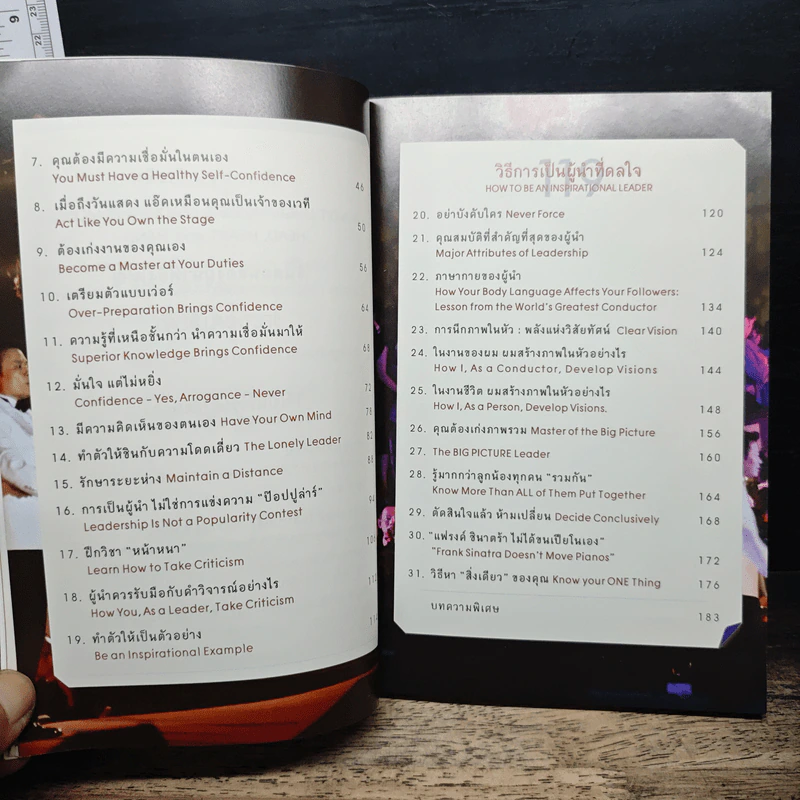 9
23
22
7. คุณต้องมีความเชื่อมั่นในตนเอง
You Must Have a Healthy Self-Confidence 46
8. เมื่อถึงวันแสดง แอ๊คเหมือนคุณเป็นเจ้าของเวที
Act Like You Own the Stage 50
9. ต้องเก่งงานของคุณเอง
Become a Master at Your Duties 56
10. เตรียมตัวแบบเว่อร์
Over-Preparation Brings Confidence 64
11. ความรู้ที่เหนือชั้นกว่า นำความเชื่อมั่นมาให้
Superior Knowledge Brings Confidence 68
12. มั่นใจ แต่ไม่หยิ่ง
Confidence - Yes, Arrogance - Never 72
13. มีความคิดเห็นของตนเอง Have Your Own Mind 78
14. ทำตัวให้ชินกับความโดดเดี่ยว The Lonely Leader 82
15. รักษาระยะห่าง Maintain a Distance 86
16. การเป็นผู้นำ ไม่ใช่การแข่งความ "ป๊อปปูล่าร์"
Leadership Is Not a Popularity Contest 94
17. ฝึกวิชา "หน้าหนา"
Learn How to Take Criticism 106
18. ผู้นำควรรับมือกับคำวิจารณ์อย่างไร
How You, As a Leader, Take Criticism 110
19. ทำตัวให้เป็นตัวอย่าง
Be an Inspirational Example 114
119
วิธีการเป็นผู้นำที่ดลใจ
HOW TO BE AN INSPIRATIONAL LEADER
20. อย่าบังคับใคร Never Force 120
21. คุณสมบัติที่สำคัญที่สุดของผู้นำ
Major Attributes of Leadership 124
22. ภาษากายของผู้นำ
How Your Body Language Affects Your Followers:
Lesson from the World's Greatest Conductor 134
23. การนึกภาพในหัว : พลังแห่งวิสัยทัศน์ Clear Vision 140
24. ในงานของผม ผมสร้างภาพในหัวอย่างไร
How I, As a Conductor, Develop Visions 144
25. ในงานชีวิต ผมสร้างภาพในหัวอย่างไร
How I, As a Person, Develop Visions. 148
26. คุณต้องเก่งภาพรวม Master of the Big Picture 156
27. The BIG PICTURE Leader 160
28. รู้มากกว่าลูกน้องทุกคน "รวมกัน"
Know More Than ALL of Them Put Together 164
29. ตัดสินใจแล้ว ห้ามเปลี่ยน Decide Conclusively 168
30. "แฟรงค์ ซินาตร้า ไม่ได้ขนเปียโนเอง"
"Frank Sinatra Doesn't Move Pianos" 172
31. วิธีหา "สิ่งเดียว" ของคุณ Know your ONE Thing 176
บทความพิเศษ 183